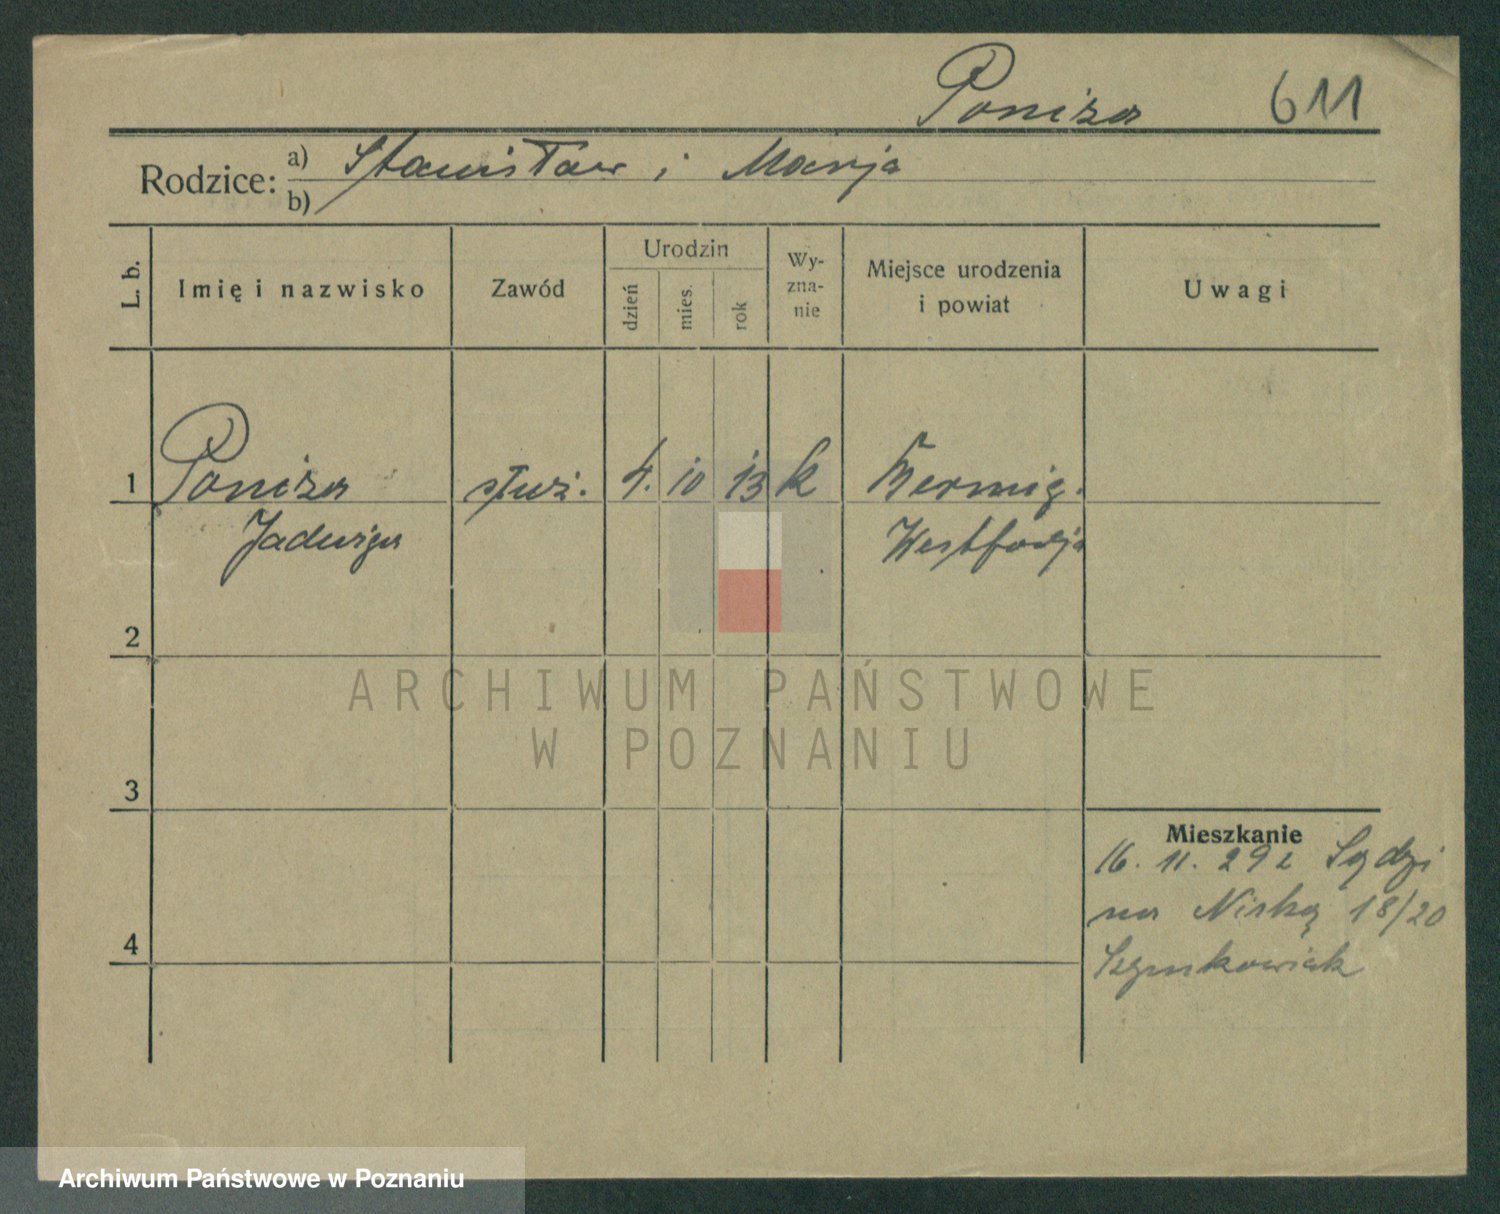 Poniza 611
Rodzice: a) Stanisław i Marja
b)
L. b.
Imię i nazwisko
Zawód
Urodzin
dzień
mies.
rok
Wy-
zna-
nie
Miejsce urodzenia
i powiat
Uwagi
1 Poniza służ. 4. 10 13 k
Jadwiga Westfalja
2
3
4
Mieszkanie
16. 11. 29 z
na Niską 18/20
Szymkowiak
ARCHIWUM PAŃSTWOWE
W POZNANIU
Archiwum Państwowe w Poznaniu